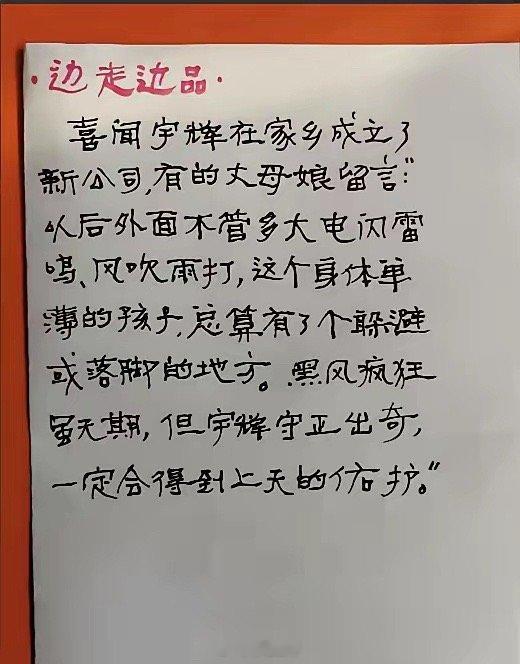 ·边走边品·
喜闻宇辉在家乡成立了
新公司,有的丈母娘留言:“
以后外面不管多大电闪雷
鸣、风吹雨打,这个身体单
薄的孩子,总算有了个躲避
或落脚的地方。黑风疯狂
虽无期,但宇辉守正出奇,
一定会得到上天的佑护。”